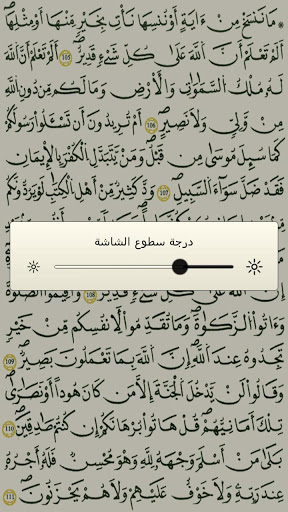 * مَا نَنسَخْ مِنْ ءَايَةٍ أَوْ نُنسِهَا نَأْتِ بِخَيْرٍ مِّنْهَا أَوْ مِثْلِهَا
أَلَمْ تَعْلَمْ أَنَّ اَللَّهَ عَلَىٰ كُلِّ شَےْءٍ قَدِيرٌ 105 أَلَمْ تَعْلَمْ أَنَّ اَللَّهَ
لَهُۥ مُلْكُ اُلسَّمَٰوَٰتِ وَالَارْضِ وَمَا لَكُم مِّن دُونِ اِللَّهِ
مِنْ وَّلِيٍّ وَلَا نَصِيرٍ 106 أَمْ تُرِيدُونَ أَن تَسْـَٔلُوا۟ رَسُولَكُمْ
كَمَا سُئِلَ مُوسَىٰ مِن قَبْلُ وَمَنْ يَّتَبَدَّلِ اِلْكُفْرَ بِالِايمَٰنِ
فَقَد ضَّلَّ سَوَآءَ اَلسَّبِيلِ 107 وَدَّ كَثِيرٌ مِّنَ اَهْلِ اِلْكِتَٰبِ لَوْ يَرُدُّونَكُم
درجة سطوع الشاشة
إِنَّ اَللَّهَ عَلَىٰ كُلِّ شَےْءٍ قَدِيرٌ 108 وَأَقِيمُوا۟ اُلصَّلَوٰةَ
وَءَاتُوا۟ اُلزَّكَوٰةَ وَمَا تُقَدِّمُوا۟ لِأَنفُسِكُم مِّنْ خَيْرٍ
تَجِدُوهُ عِندَ اَللَّهِ إِنَّ اَللَّهَ بِمَا تَعْمَلُونَ بَصِيرٌ 109
وَقَالُوا۟ لَنْ يَّدْخُلَ اَلْجَنَّةَ إِلَّا مَن كَانَ هُودًا اَوْ نَصَٰرَىٰ
تِلْكَ أَمَانِيُّهُمْ قُلْ هَاتُوا۟ بُرْهَٰنَكُمُۥٓ إِن كُنتُمْ صَٰدِقِينَ 110
بَلَىٰ مَنَ اَسْلَمَ وَجْهَهُۥ لِلهِ وَهُوَ مُحْسِنٌ فَلَهُۥٓ أَجْرُهُۥ
عِندَ رَبِّهِۦ وَلَا خَوْفٌ عَلَيْهِمْ وَلَا هُمْ يَحْزَنُونَ 111